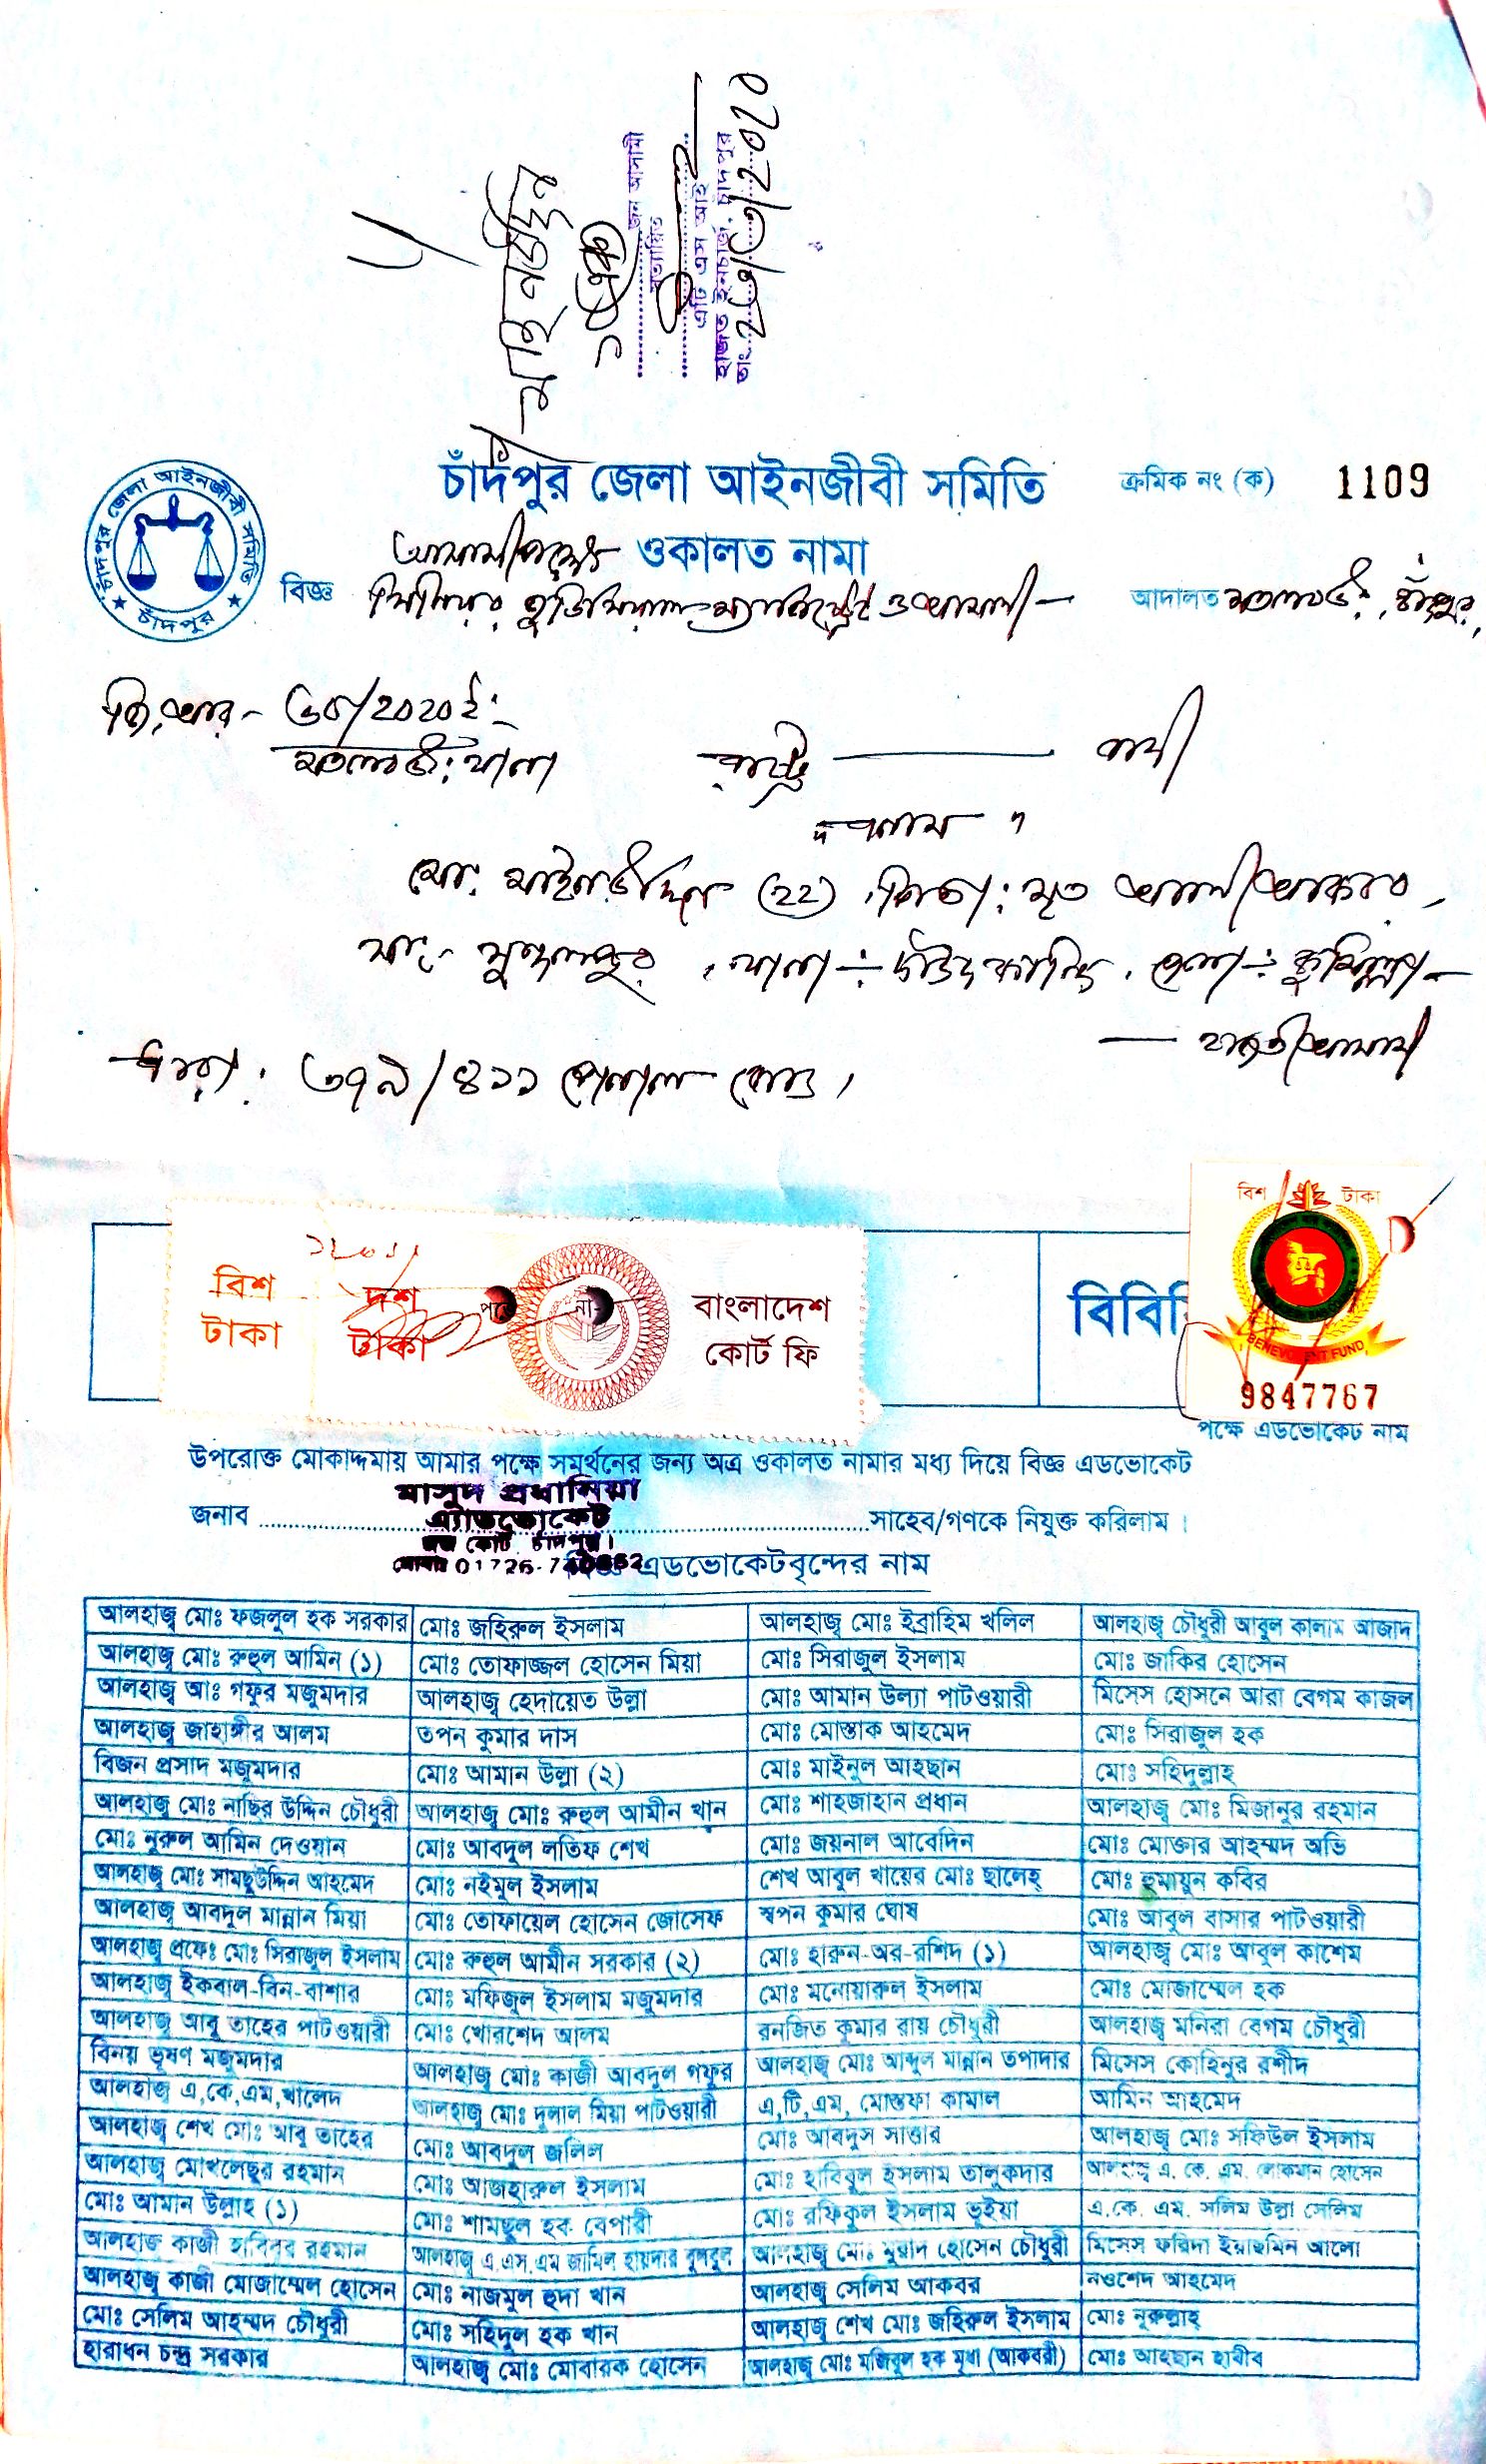 মাইনউদ্দিন
১(এক)
জন আসামী
সত্যায়িত
এটি এস আই
হাজত ইনচার্জ, চাঁদপুর
তাং
চাঁদপুর জেলা আইনজীবী সমিতি
ক্রমিক নং (ক) 1109
চাঁদপুর জেলা আইনজীবী সমিতি
★ চাঁদপুর ★
আসামীপক্ষে ওকালত নামা
বিজ্ঞ সিনিয়র জুডিসিয়াল ম্যাজিষ্ট্রেট ও আমলী আদালত মতলব উঃ, চাঁদপুর,
জি,আর- /2020ইং
মতলব উঃ থানা
রাষ্ট্র — বাদী
বনাম
মো: মাইনউদ্দিন (22), পিতা: মৃত আলী আকবর,
সাং- সুন্দলপুর, থানা ÷ দাউদকান্দি, জেলা ÷ কুমিল্লা-
— আসামী
ধারা: ৩৭৯/৪১১ পেনাল কোড,
বিশ টাকা
দশ টাকা
বাংলাদেশ
কোর্ট ফি
বিশ টাকা
BENEVOLENT FUND
9847767
পক্ষে এডভোকেট নাম
উপরোক্ত মোকাদ্দমায় আমার পক্ষে সমর্থনের জন্য অত্র ওকালত নামার মধ্য দিয়ে বিজ্ঞ এডভোকেট
মাসুদ প্রধানিয়া
জনাব সাহেব/গণকে নিযুক্ত করিলাম।
এ্যাডভোকেট
জজ কোর্ট, চাঁদপুর।
মোবাঃ
এডভোকেটবৃন্দের নাম
আলহাজ্ব মোঃ ফজলুল হক সরকার মোঃ জহিরুল ইসলাম আলহাজ্ব মোঃ ইব্রাহিম খলিল আলহাজ্ব চৌধুরী আবুল কালাম আজাদ
আলহাজ্ব মোঃ রুহুল আমিন (১) মোঃ তোফাজ্জল হোসেন মিয়া মোঃ সিরাজুল ইসলাম মোঃ জাকির হোসেন
আলহাজ্ব আঃ গফুর মজুমদার আলহাজ্ব হেদায়েত উল্লা মোঃ আমান উল্যা পাটওয়ারী মিসেস হোসনে আরা বেগম কাজল
আলহাজ্ব জাহাঙ্গীর আলম তপন কুমার দাস মোঃ মোস্তাক আহমেদ মোঃ সিরাজুল হক
বিজন প্রসাদ মজুমদার মোঃ আমান উল্লা (২) মোঃ মাইনুল আহছান মোঃ সহিদুল্লাহ
আলহাজ্ব মোঃ নাছির উদ্দিন চৌধুরী আলহাজ্ব মোঃ রুহুল আমীন খান মোঃ শাহজাহান প্রধান আলহাজ্ব মোঃ মিজানুর রহমান
মোঃ নুরুল আমিন দেওয়ান মোঃ আবদুল লতিফ শেখ মোঃ জয়নাল আবেদিন মোঃ মোক্তার আহম্মদ অভি
আলহাজ্ব মোঃ সামছুউদ্দিন আহমেদ মোঃ নইমুল ইসলাম শেখ আবুল খায়ের মোঃ ছালেহ্ মোঃ হুমায়ুন কবির
আলহাজ্ব আবদুল মান্নান মিয়া মোঃ তোফায়েল হোসেন জোসেফ স্বপন কুমার ঘোষ মোঃ আবুল বাসার পাটওয়ারী
আলহাজ্ব প্রফেঃ মোঃ সিরাজুল ইসলাম মোঃ রুহুল আমীন সরকার (২) মোঃ হারুন-অর-রশিদ (১) আলহাজ্ব মোঃ আবুল কাশেম
আলহাজ্ব ইকবাল-বিন-বাশার মোঃ মফিজুল ইসলাম মজুমদার মোঃ মনোয়ারুল ইসলাম মোঃ মোজাম্মেল হক
আলহাজ্ব আবু তাহের পাটওয়ারী মোঃ খোরশেদ আলম রনজিত কুমার রায় চৌধুরী আলহাজ্ব মনিরা বেগম চৌধুরী
বিনয় ভূষণ মজুমদার আলহাজ্ব মোঃ কাজী আবদুল গফুর আলহাজ্ব মোঃ আব্দুল মান্নান তপাদার মিসেস কোহিনুর রশীদ
আলহাজ্ব এ,কে,এম,খালেদ আলহাজ্ব মোঃ দুলাল মিয়া পাটওয়ারী এ,টি,এম, মোস্তফা কামাল আমিন আহমেদ
আলহাজ্ব শেখ মোঃ আবু তাহের মোঃ আবদুল জলিল মোঃ আবদুস সাত্তার আলহাজ্ব মোঃ সফিউল ইসলাম
আলহাজ্ব মোখলেছুর রহমান মোঃ আজহারুল ইসলাম মোঃ হাবিবুল ইসলাম তালুকদার আলহাজ্ব এ. কে. এম. লোকমান হোসেন
মোঃ আমান উল্লাহ (১) মোঃ শামছুল হক বেপারী মোঃ রফিকুল ইসলাম ভূইয়া এ.কে. এম. সলিম উল্লা সেলিম
আলহাজ্ব কাজী হাবিবুর রহমান আলহাজ্ব এ.এস.এম জামিল হায়দার বুলবুল আলহাজ্ব মোঃ মুরাদ হোসেন চৌধুরী মিসেস ফরিদা ইয়াছমিন আলো
আলহাজ্ব কাজী মোজাম্মেল হোসেন মোঃ নাজমুল হুদা খান আলহাজ্ব সেলিম আকবর নওশেদ আহমেদ
মোঃ সেলিম আহম্মদ চৌধুরী মোঃ সহিদুল হক খান আলহাজ্ব শেখ মোঃ জহিরুল ইসলাম মোঃ নুরুল্লাহ্
হারাধন চন্দ্র সরকার আলহাজ্ব মোঃ মোবারক হোসেন আলহাজ্ব মোঃ মজিবুল হক মৃধা (আকবরী) মোঃ আহছান হাবীব